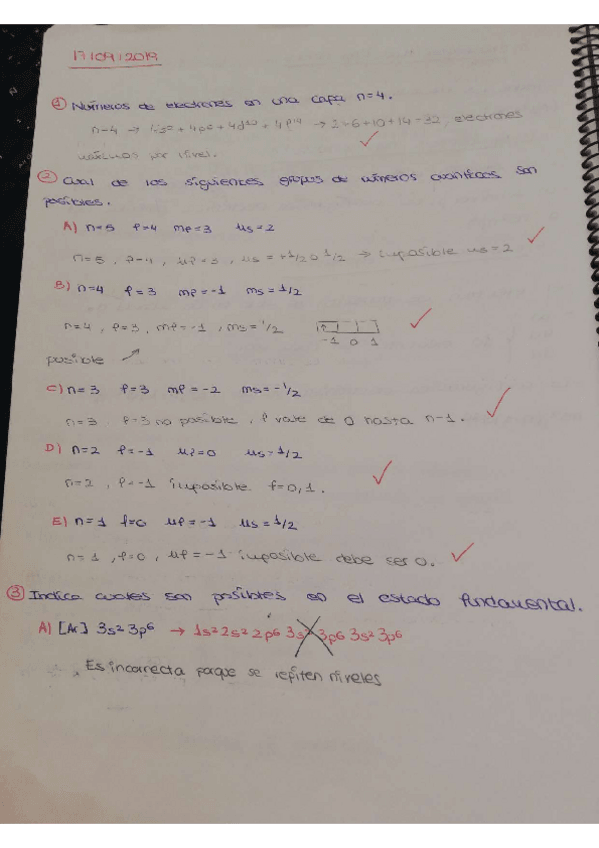 17/09/2019
① Números de electrones en una capa n=4.
n=4 → 4s² + 4p⁶ + 4d¹⁰ + 4f¹⁴ → 2+6+10+14=32 electrones
máximos por nivel.
② Cual de los siguientes grupos de números cuánticos son
posibles.
A) n=5 l=4 ml=3 ms=2
n=5, l=4, ml=3, ms=+1/2 o 1/2 → imposible ms=2
B) n=4 l=3 ml=-1 ms=1/2
n=4, l=3, ml=-1, ms=1/2
-1 0 1
posible
C) n=3 l=3 ml=-2 ms=-1/2
n=3 l=3 no posible, l vale de 0 hasta n-1.
D) n=2 l=-1 ml=0 ms=1/2
n=2, l=-1 imposible l=0,1.
E) n=1 l=0 ml=-1 ms=1/2
n=1, l=0, ml=-1 imposible debe ser 0.
③ Indica cuales son posibles en el estado fundamental.
A) [Ar] 3s² 3p⁶ → 1s² 2s² 2p⁶ 3s² 3p⁶ 3s² 3p⁶
Es incorrecta porque se repiten niveles